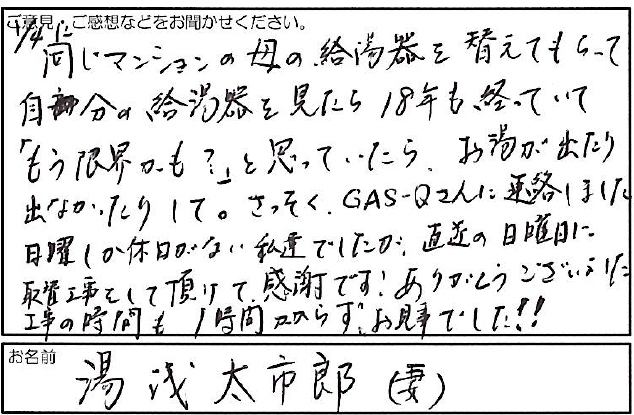 ご意見、ご感想などをお聞かせください。
1/4に
同じマンションの母の給湯器を替えてもらって
自分の給湯器を見たら18年も経っていて
「もう限界かも?」と思っていたら、お湯が出たり
出なかったりして。さっそく、GAS-Qさんに連絡しました
日曜しか休日がない私達でしたが、直近の日曜日に
取替工事をして頂けて、感謝です!ありがとうございました
工事の時間も1時間かからず、お見事でした!!
お名前
湯浅太市郎(妻)